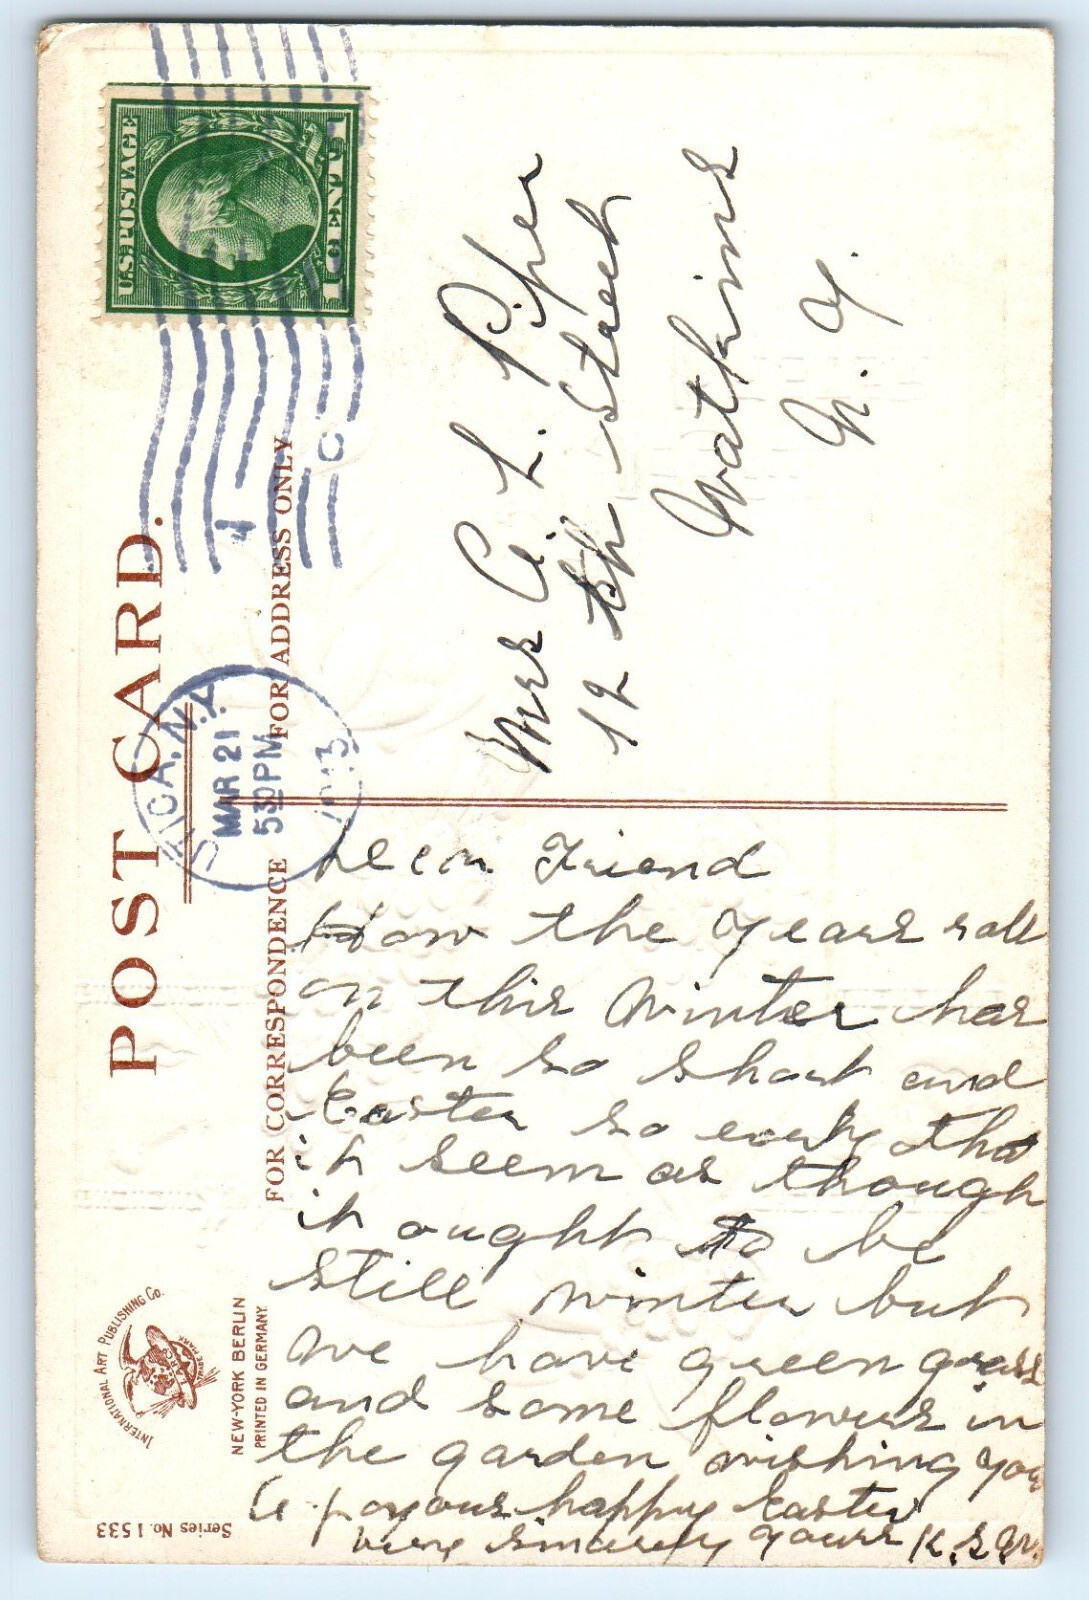 POST CARD.
FOR ADDRESS ONLY
FOR CORRESPONDENCE
U.S. POSTAGE
1 CENT 1
UTICA, N.Y.
MAR 21
530 PM
1913
Mrs C. L. Piper
12 th Street
Watkins
N. Y.
Dear Friend
How the years roll
on this Winter has
been so short and
Easter so early that
it seem as though
it ought to be
still winter but
we have green grass
and some flowers in
the garden wishing you
a joyous happy Easter
very sincerely yours K.
INTERNATIONAL ART PUBLISHING CO.
TRADE MARK
NEW-YORK BERLIN
PRINTED IN GERMANY
Series No. 1533